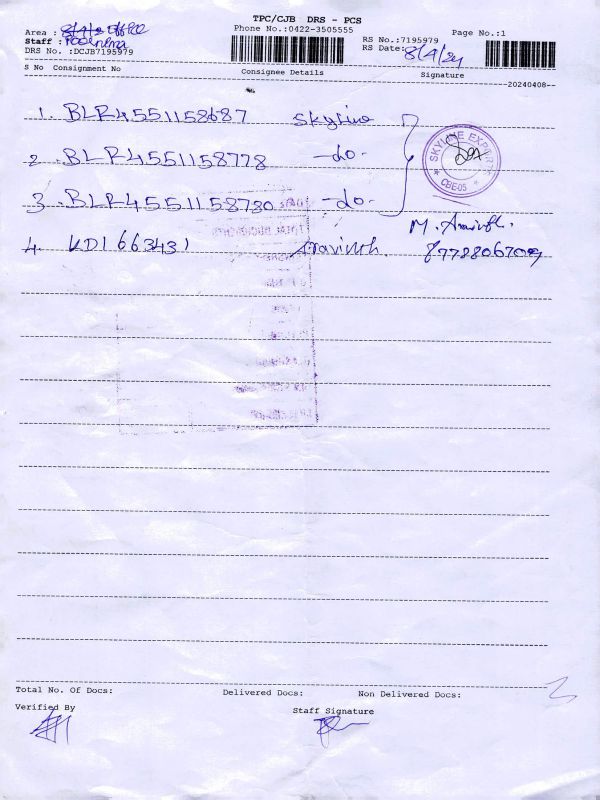 TPC/CJB DRS - PCS
Area : Office
Phone No.:0422-3505555
Page No.:1
Staff : Poornima
RS No.:7195979
DRS No. :DCJB7195979
RS Date: 8/4/24
S No Consignment No Consignee Details Signature
20240408
1. BLR4551158687 Skyline
SKYLINE EXPORT
CBE-05
2. BLR4551158778 -do-
3. BLR4551158780 -do-
M. Aravinth.
4. KD1663431 Aravinth.
Total No. Of Docs: Delivered Docs: Non Delivered Docs:
Verified By Staff Signature